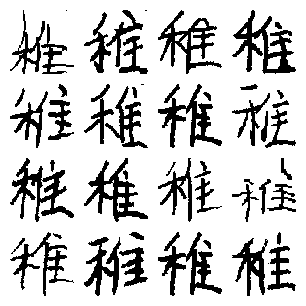 稚稚稚稚
稚稚稚稚
稚稚稚稚
稚稚稚稚